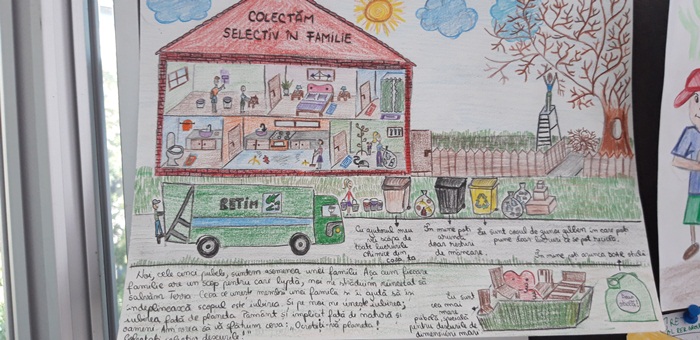 COLECTĂM
SELECTIV ÎN FAMILIE
RETIM
Cu ajutorul meu
vă scăpa de
toate lucrurile
chimice din
casa ta
În mine poți
arunca
doar resturi
de mâncare.
Eu sunt coșul de gunoi galben în care poți
pune doar lucruri ce se pot recicla.
În mine poți arunca doar sticlă
Noi, cele cinci pubele, suntem asemenea unei familii. Așa cum fiecare
familie are un scop pentru care luptă, noi ne străduim neîncetat să
salvăm Terra. Ceea ce unește membrii unei familii și îi ajută să își
îndeplinească scopul este iubirea. Și pe noi ne unește iubirea,
iubirea față de planeta Pământ și implicit față de natură și
oameni. Am vrea să vă sfătuim ceva: „Ocrotiți-vă planeta!
Colectați selectiv deșeurile!"
Eu sunt
cea mai
mare
pubelă, specială
pentru deșeurile de
dimensiuni mari